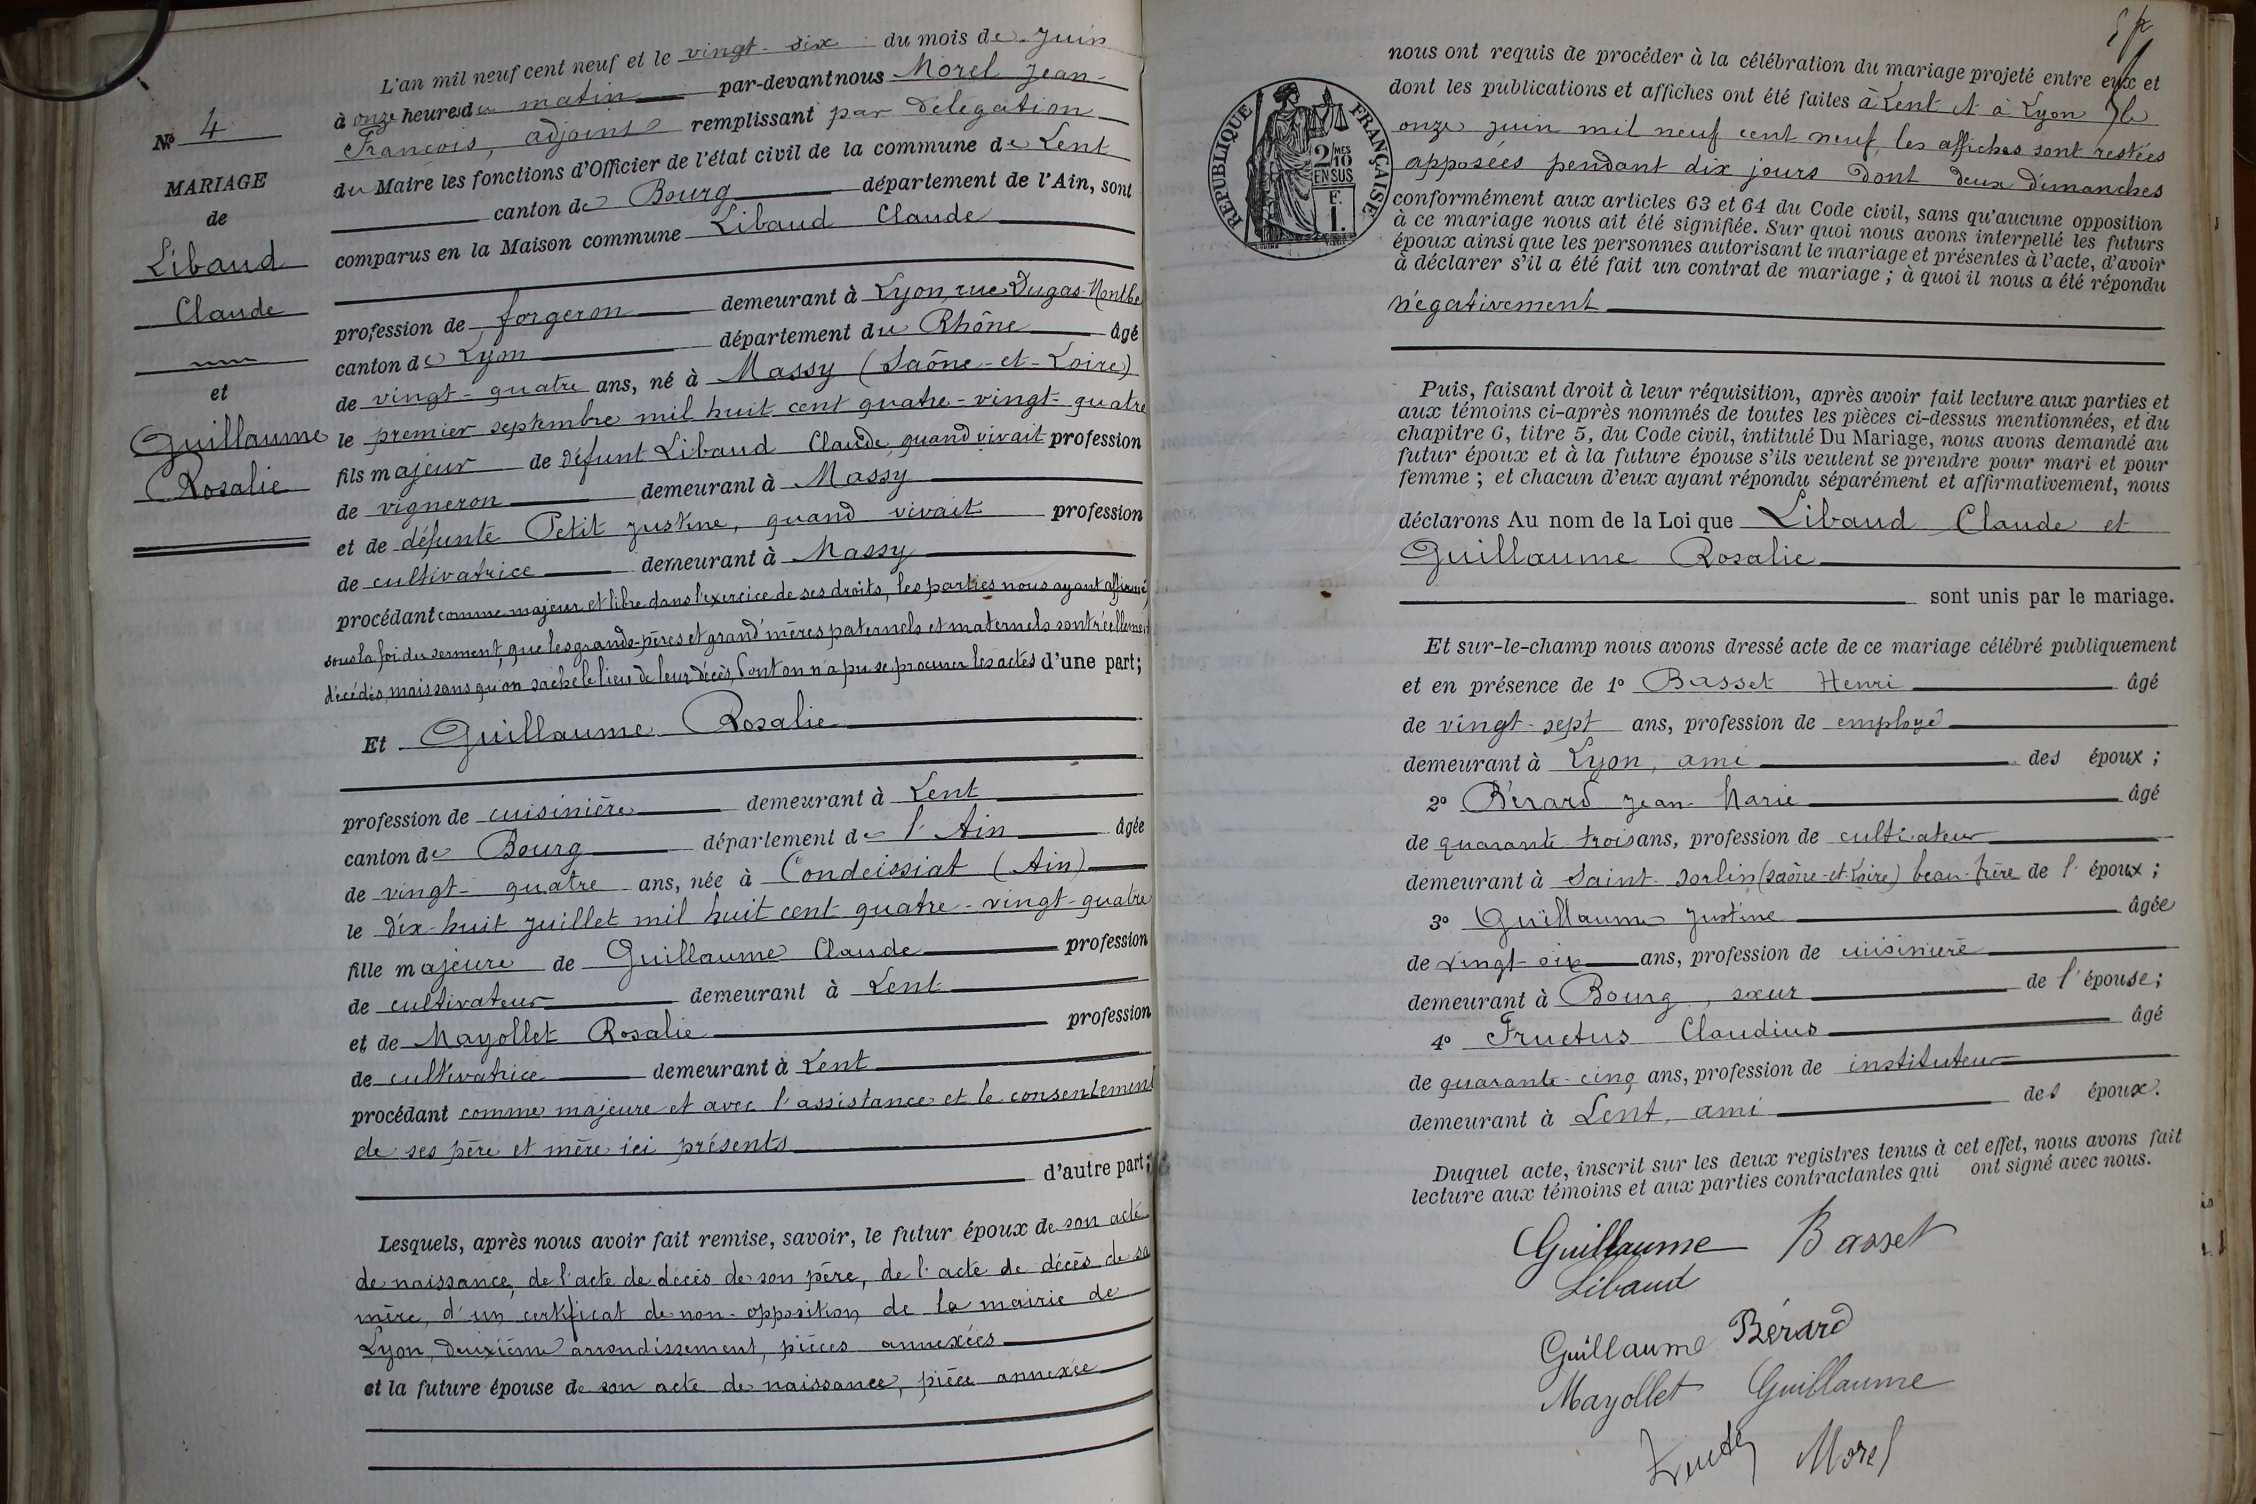 L'an mil neuf cent neuf et le vingt-six du mois de Juin
à onze heures du matin par-devant nous Morel Jean-
François, adjoint remplissant par délégation
du Maire les fonctions d'Officier de l'état civil de la commune de Lent
canton de Bourg département de l'Ain, sont
comparus en la Maison commune Libaud Claude
profession de forgeron demeurant à Lyon, rue Dugas-Montbel
canton de Lyon département du Rhône âgé
de vingt-quatre ans, né à Massy (Saône-et-Loire)
le premier septembre mil huit cent quatre-vingt-quatre
fils majeur de défunt Libaud Claude, quand vivait profession
de vigneron demeurant à Massy
et de défunte Petit Justine, quand vivait profession
de cultivatrice demeurant à Massy
procédant comme majeur et libre dans l'exercice de ses droits, les parties nous ayant affirmé,
sous la foi du serment, que les grands-pères et grand'mères paternels et maternels sont réellement
décédés, mais sans qu'on sache le lieu de leur décès, dont on n'a pu se procurer les actes d'une part;
Et Guillaume Rosalie
profession de cuisinière demeurant à Lent
canton de Bourg département de l'Ain âgée
de vingt-quatre ans, née à Condeissiat (Ain)
le dix-huit juillet mil huit cent quatre-vingt-quatre
fille majeure de Guillaume Claude profession
de cultivateur demeurant à Lent
et de Mayollet Rosalie profession
de cultivatrice demeurant à Lent
procédant comme majeure et avec l'assistance et le consentement
de ses père et mère ici présents
d'autre part;
Lesquels, après nous avoir fait remise, savoir, le futur époux de son acte
de naissance, de l'acte de décès de son père, de l'acte de décès de sa
mère, d'un certificat de non-opposition de la mairie de
Lyon, deuxième arrondissement, pièces annexées
et la future épouse de son acte de naissance, pièce annexée
No 4
MARIAGE
de
Libaud
Claude
et
Guillaume
Rosalie
nous ont requis de procéder à la célébration du mariage projeté entre eux et
dont les publications et affiches ont été faites à Lent et à Lyon le
onze juin mil neuf cent neuf, les affiches sont restées
apposées pendant dix jours dont deux dimanches
conformément aux articles 63 et 64 du Code civil, sans qu'aucune opposition
à ce mariage nous ait été signifiée. Sur quoi nous avons interpellé les futurs
époux ainsi que les personnes autorisant le mariage et présentes à l'acte, d'avoir
à déclarer s'il a été fait un contrat de mariage; à quoi il nous a été répondu
négativement
RÉPUBLIQUE FRANÇAISE
2/MES
10
EN SUS
F.
1.
Puis, faisant droit à leur réquisition, après avoir fait lecture aux parties et
aux témoins ci-après nommés de toutes les pièces ci-dessus mentionnées, et du
chapitre 6, titre 5, du Code civil, intitulé Du Mariage, nous avons demandé au
futur époux et à la future épouse s'ils veulent se prendre pour mari et pour
femme; et chacun d'eux ayant répondu séparément et affirmativement, nous
déclarons Au nom de la Loi que Libaud Claude et
Guillaume Rosalie
sont unis par le mariage.
Et sur-le-champ nous avons dressé acte de ce mariage célébré publiquement
et en présence de 1o Basset Henri âgé
de vingt-sept ans, profession de employé
demeurant à Lyon, ami des époux;
2o Bérard Jean-Marie âgé
de quarante trois ans, profession de cultivateur
demeurant à Saint-Sorlin (Saône-et-Loire) beau-frère de l'époux;
3o Guillaume Justine âgée
de vingt-six ans, profession de cuisinière
demeurant à Bourg, sœur de l'épouse;
4o Fructus Claudius âgé
de quarante-cinq ans, profession de instituteur
demeurant à Lent, ami des époux.
Duquel acte, inscrit sur les deux registres tenus à cet effet, nous avons fait
lecture aux témoins et aux parties contractantes qui ont signé avec nous.
Guillaume Basset
Libaud
Guillaume Bérard
Mayollet Guillaume
Morel